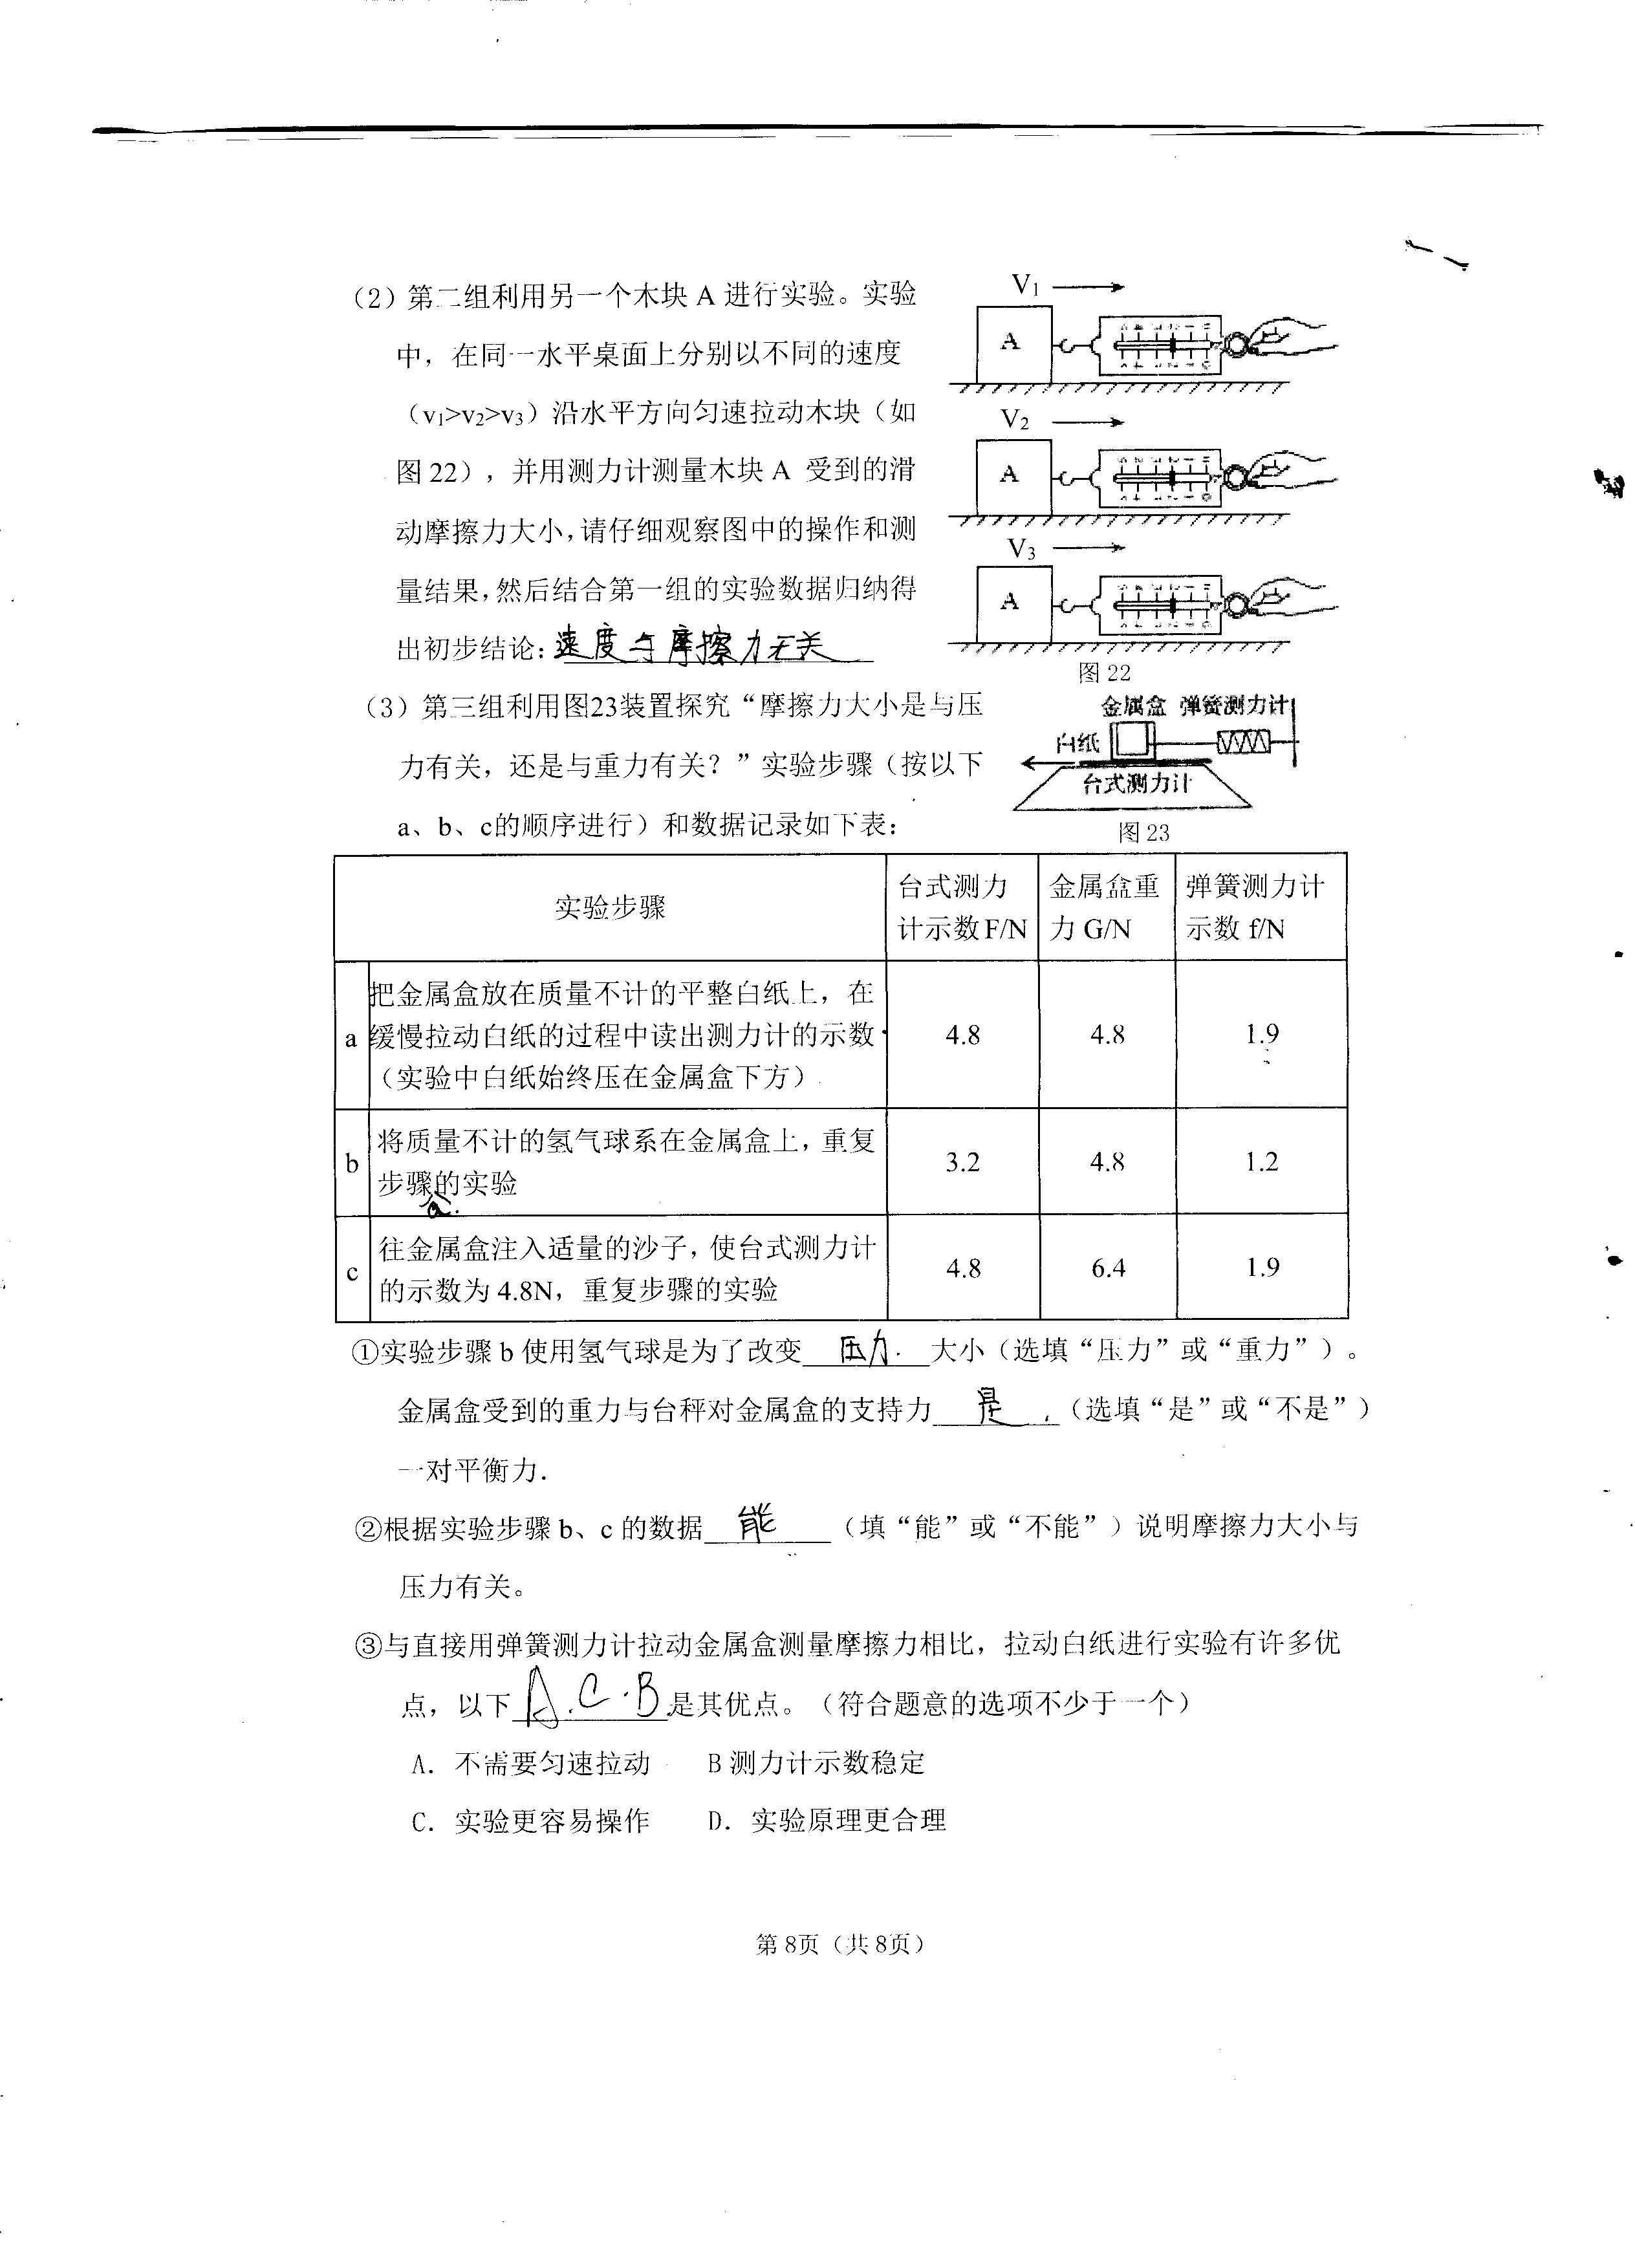 (2) 第二组利用另一个木块 A 进行实验。实验
中，在同一水平桌面上分别以不同的速度
（v₁>v₂>v₃）沿水平方向匀速拉动木块（如
图 22），并用测力计测量木块 A 受到的滑
动摩擦力大小，请仔细观察图中的操作和测
量结果，然后结合第一组的实验数据归纳得
出初步结论: 速度与摩擦力无关
V₁
A
V₂
A
V₃
A
图 22
(3) 第三组利用图23装置探究“摩擦力大小是与压
力有关，还是与重力有关？”实验步骤（按以下
a、b、c的顺序进行）和数据记录如下表：
金属盒 弹簧测力计
白纸
台式测力计
图 23
实验步骤
台式测力
计示数 F/N
金属盒重
力 G/N
弹簧测力计
示数 f/N
a
把金属盒放在质量不计的平整白纸上，在
缓慢拉动白纸的过程中读出测力计的示数
（实验中白纸始终压在金属盒下方）
4.8
4.8
1.9
b
将质量不计的氢气球系在金属盒上，重复
步骤的实验
a.
3.2
4.8
1.2
c
往金属盒注入适量的沙子，使台式测力计
的示数为 4.8N，重复步骤的实验
4.8
6.4
1.9
①实验步骤 b 使用氢气球是为了改变 压力. 大小（选填“压力”或“重力”）。
金属盒受到的重力与台秤对金属盒的支持力 是 （选填“是”或“不是”）
一对平衡力.
②根据实验步骤 b、c 的数据 能 （填“能”或“不能”）说明摩擦力大小与
压力有关。
③与直接用弹簧测力计拉动金属盒测量摩擦力相比，拉动白纸进行实验有许多优
点，以下 A.C.B 是其优点。（符合题意的选项不少于一个）
A. 不需要匀速拉动 B 测力计示数稳定
C. 实验更容易操作 D. 实验原理更合理
第 8页（共 8页）